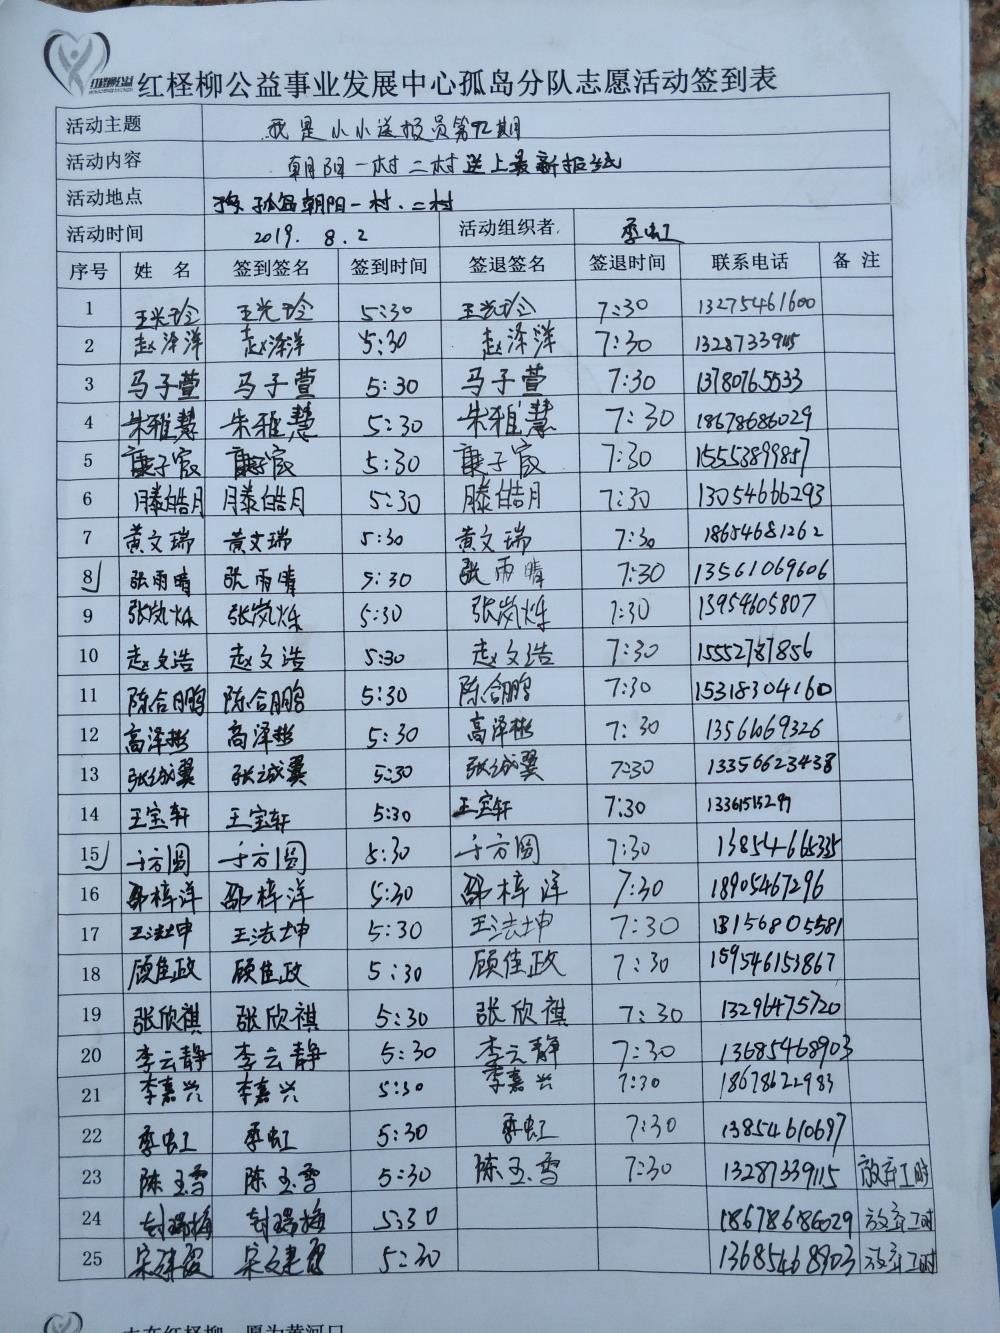 红柽柳公益
红柽柳公益事业发展中心孤岛分队志愿活动签到表
活动主题 我是小小送报员第92期
活动内容 朝阳一村二村送上最新报纸
活动地点 孤岛朝阳一村.二村
活动时间 2019. 8. 2 活动组织者 季虹
序号 姓 名 签到签名 签到时间 签退签名 签退时间 联系电话 备 注
1 王光玲 王光玲 5:30 王光玲 7:30 13275461600
2 赵泽洋 赵泽洋 5:30 赵泽洋 7:30
3 马子萱 马子萱 5:30 马子萱 7:30 13780765533
4 朱雅慧 朱雅慧 5:30 朱雅慧 7:30 18678686029
5 5:30 7:30 15553899857
6 滕皓月 滕皓月 5:30 滕皓月 7:30 13054666293
7 黄文瑞 黄文瑞 5:30 黄文瑞 7:30 18654681262
8 张雨晴 张雨晴 5:30 张雨晴 7:30 13561069606
9 张岚烁 张岚烁 5:30 张岚烁 7:30 13954605807
10 赵文浩 赵文浩 5:30 赵文浩 7:30 15552787856
11 陈合鹏 陈合鹏 5:30 陈合鹏 7:30 15318304160
12 高泽彬 高泽彬 5:30 高泽彬 7:30 13561069326
13 张诚翼 张诚翼 5:30 张诚翼 7:30 13356623438
14 王宝轩 王宝轩 5:30 王宝轩 7:30
15 于方圆 于方圆 5:30 于方圆 7:30
16 邵梓洋 邵梓洋 5:30 邵梓洋 7:30 18905467296
17 王法坤 王法坤 5:30 王法坤 7:30
18 顾佳政 顾佳政 5:30 顾佳政 7:30 159546153867
19 张欣祺 张欣祺 5:30 张欣祺 7:30 13296475720
20 李云静 李云静 5:30 李云静 7:30 13685468903
21 李嘉兴 李嘉兴 5:30 李嘉兴 7:30 18678622983
22 季虹 季虹 5:30 季虹 7:30 13854610697
23 陈玉雪 陈玉雪 5:30 陈玉雪 7:30 13287339115 放弃工时
24 封瑞梅 封瑞梅 5:30 18678686029 放弃工时
25 5:30 13685468903 放弃工时